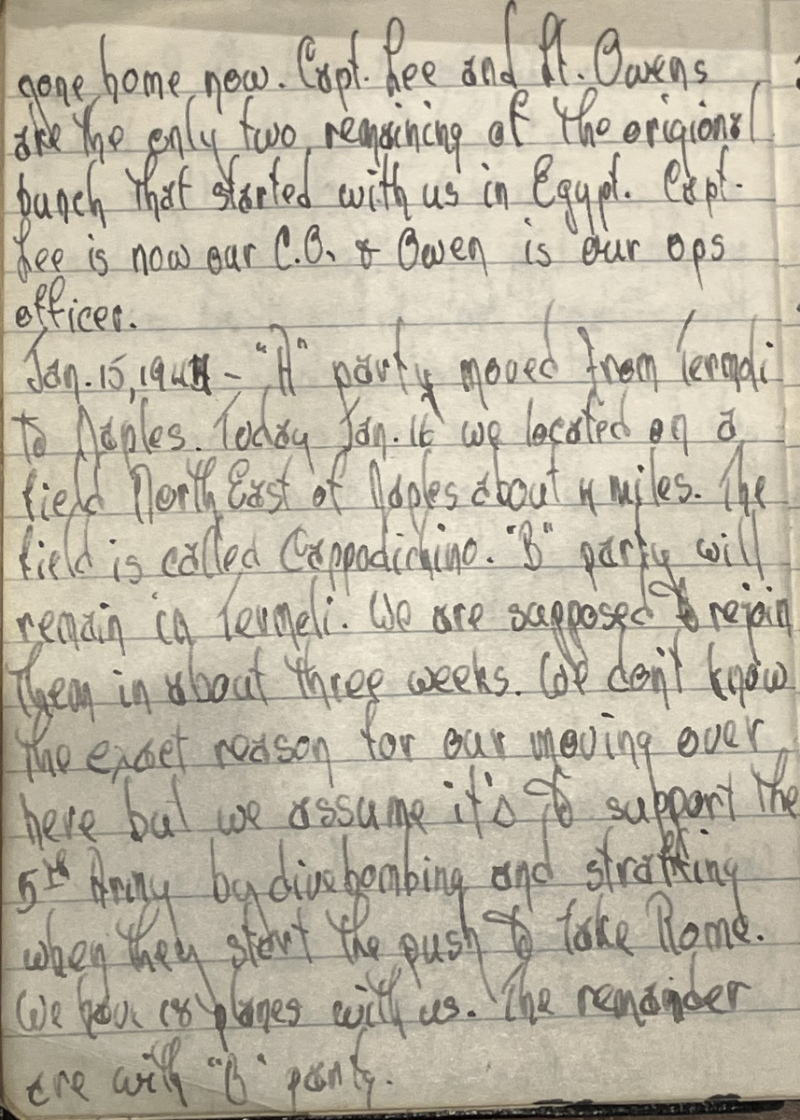 gone home now. Capt. Lee and Lt. Owens
are the only two remaining of the origional
bunch that started with us in Egypt. Capt.
Lee is now our C.O. & Owen is our ops
officer.
Jan. 15, 1944 - "A" party moved from Termoli
to Naples. Today Jan. 16 we located on a
field North East of Naples about 4 miles. The
field is called Cappodichino. "B" party will
remain in Termoli. We are supposed to rejoin
them in about three weeks. We don't know
the exact reason for our moving over
here but we assume it's to support the
5th Army by divebombing and straffing
when they start the push to take Rome.
We have 18 planes with us. The remainder
are with "B" party.